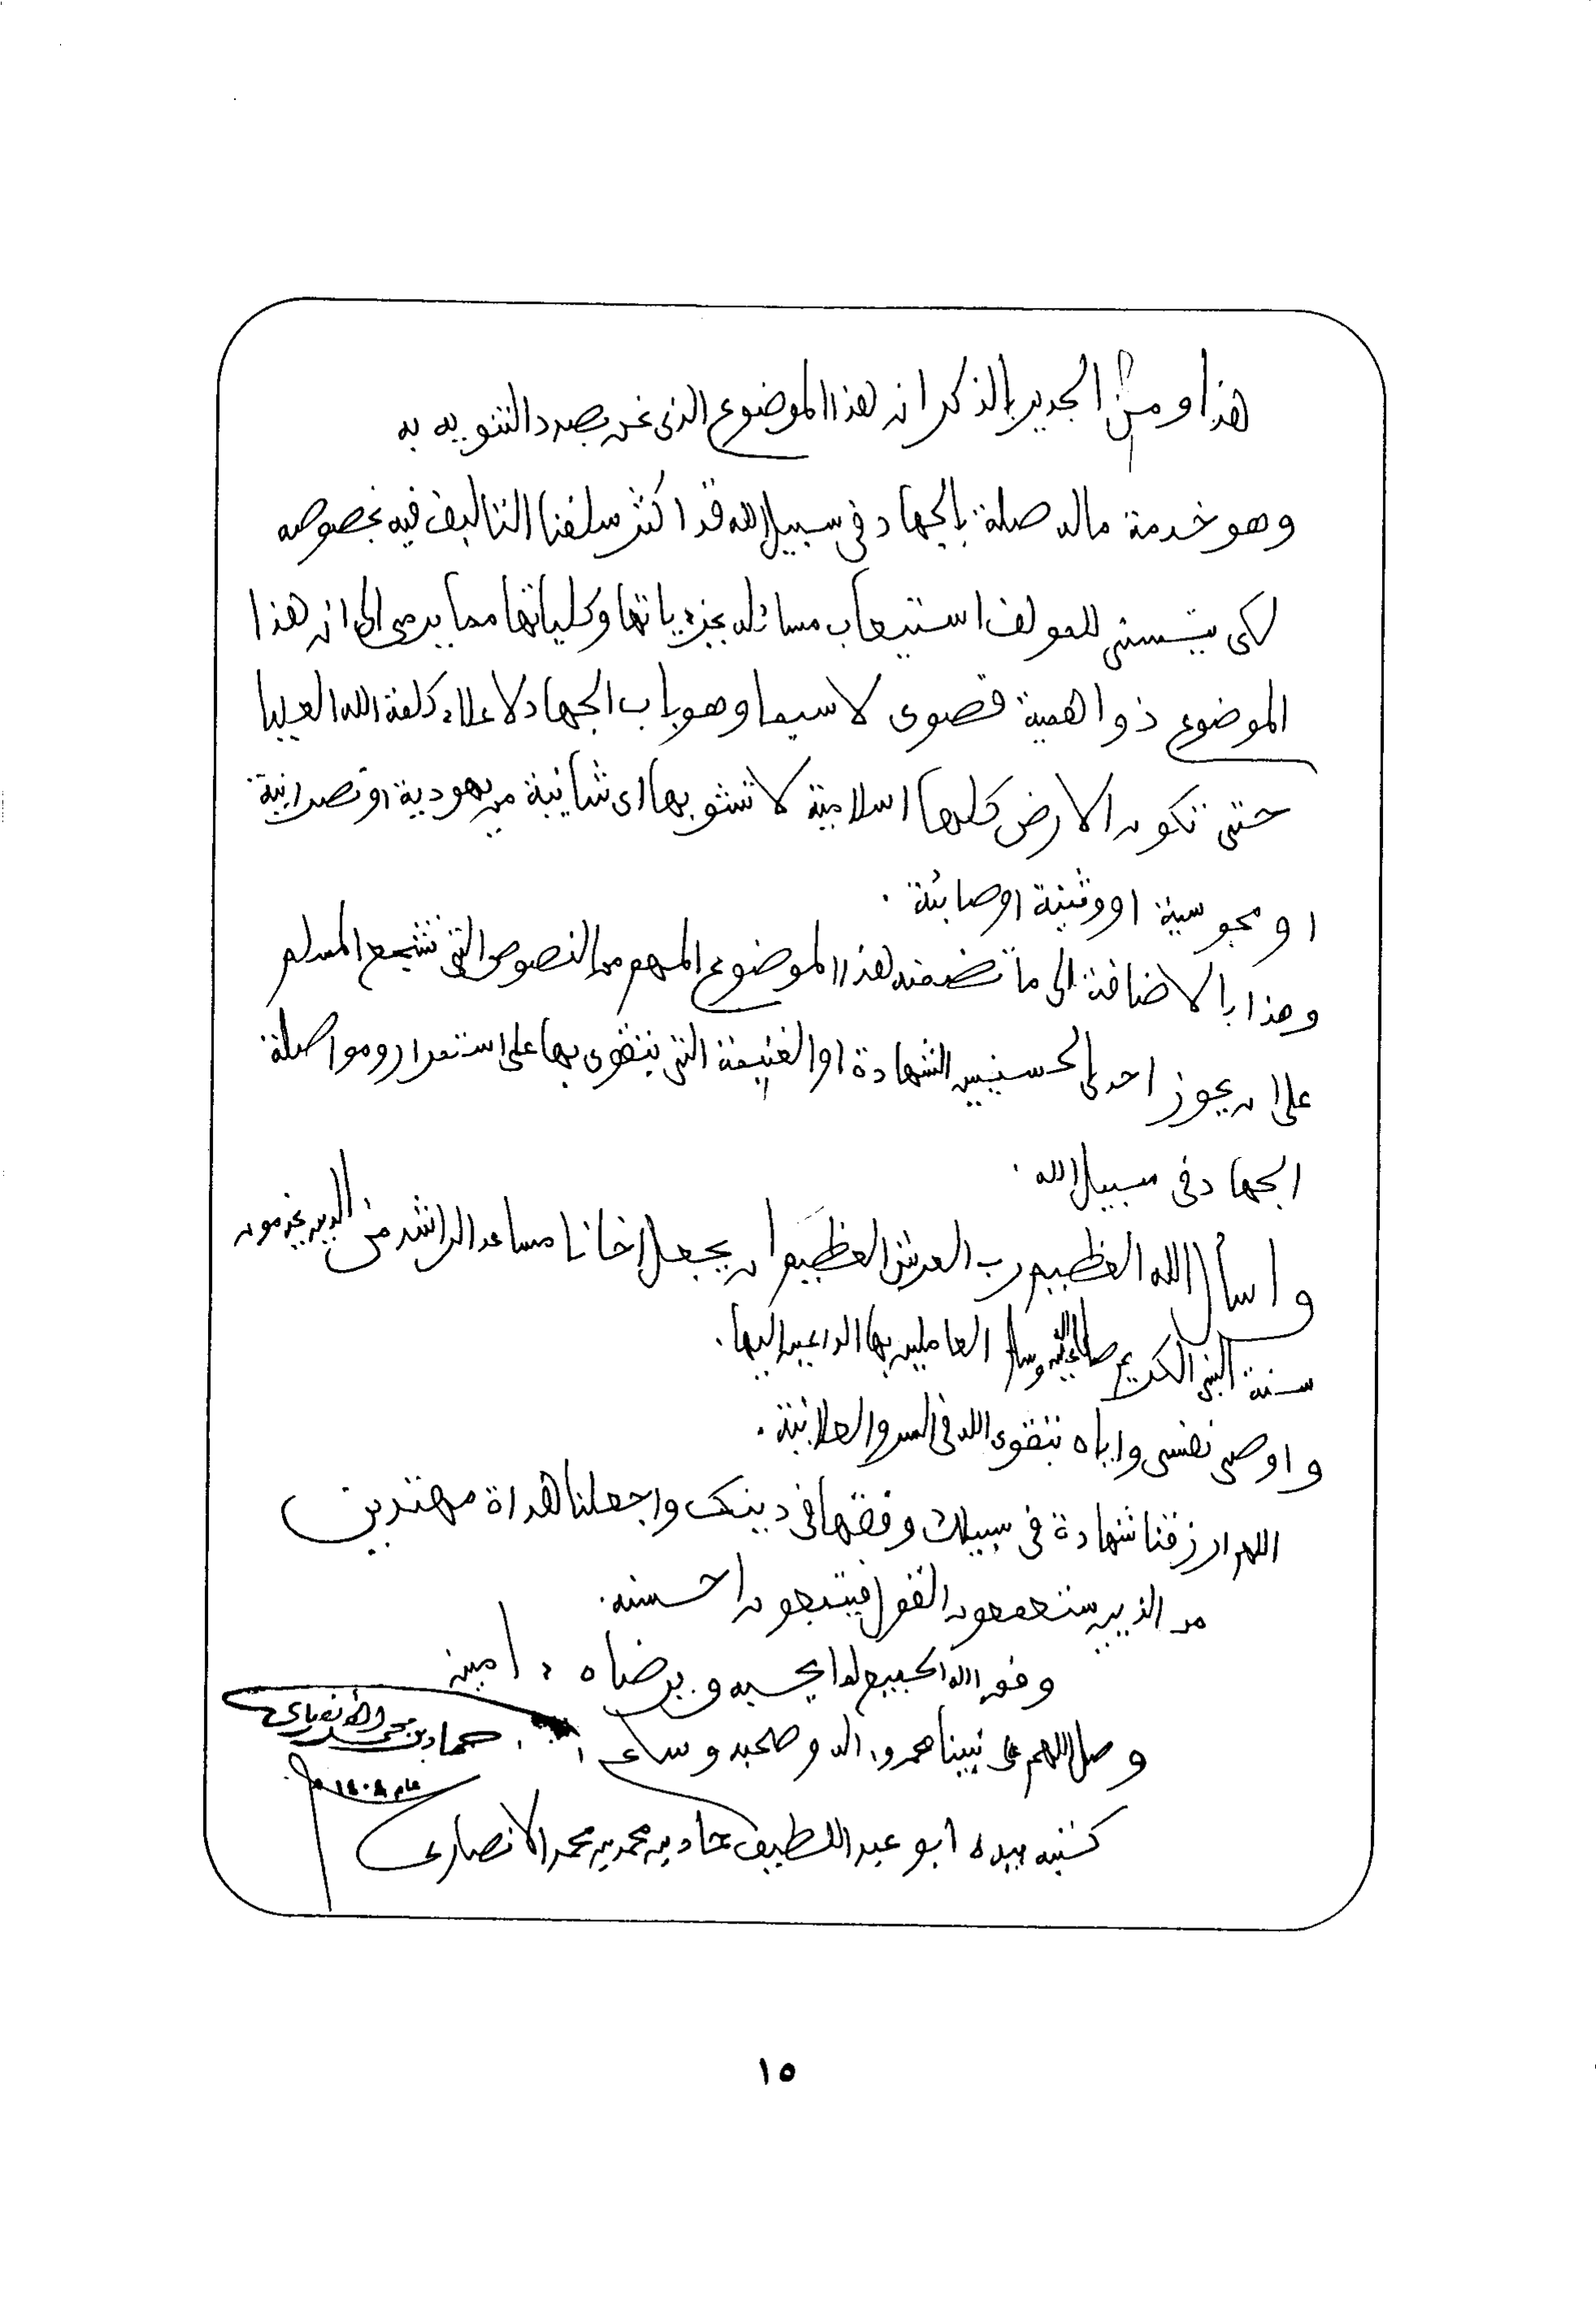 هذا ومن الجدير بالذكر ان هذا الموضوع الذى نحن بصدد التنويه به
وهو خدمة ماله صلة بالجهاد فى سبيل الله قد اكثر سلفنا التاليف فيه بخصوصه
لكى يتسنى للمولف استيعاب مسائله بجزئياتها وكلياتها مما يرمى الى ان هذا
الموضوع ذو اهمية قصوى لا سيما وهو باب الجهاد لاعلاء كلمة الله العليا
حتى تكون الارض كلها اسلامية لا تشوبها اى شائبة من يهودية او نصرانية
او مجوسية او وثنية او صابئة .
وهذا بالاضافة الى ما تضمنه هذا الموضوع المهم من النصوص التى تشجع المسلم
على ان يحوز احدى الحسنيين الشهادة او الغنيمة التى يتقوى بها على استمرار ومواصلة
الجهاد فى سبيل الله .
واسأل الله العظيم رب العرش العظيم ان يجعل اخانا مساعد الراشد من الذين يخدمون
سنة النبى الكريم صلى الله عليه وسلم العاملين بها الداعين اليها .
واوصى نفسى واياه بتقوى الله فى السر والعلانية .
اللهم ارزقنا شهادة فى سبيلك وفقها فى دينك واجعلنا هداة مهتدين
من الذين يستمعون القول فيتبعون احسنه .
وفق الله الجميع لما يحبه ويرضاه ، امين
وصل اللهم على نبينا محمد واله وصحبه وسلم
حماد بن محمد الأنصاري
عام ١٤٠٨ هـ
كتبه بيده ابو عبد اللطيف حماد بن محمد بن محمد الانصارى
١٥